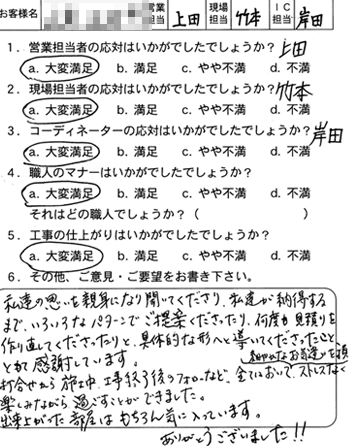 お客様名 営業担当 上田 現場担当 竹本 IC担当 岸田
1．営業担当者の応対はいかがでしたでしょうか？ 上田
a. 大変満足 b. 満足 c. やや不満 d. 不満
2．現場担当者の応対はいかがでしたでしょうか？ 竹本
a. 大変満足 b. 満足 c. やや不満 d. 不満
3．コーディネーターの応対はいかがでしたでしょうか？ 岸田
a. 大変満足 b. 満足 c. やや不満 d. 不満
4．職人のマナーはいかがでしたでしょうか？
a. 大変満足 b. 満足 c. やや不満 d. 不満
それはどの職人でしょうか？（ ）
5．工事の仕上がりはいかがでしたでしょうか？
a. 大変満足 b. 満足 c. やや不満 d. 不満
6．その他、ご意見・ご要望をお書き下さい。
私達の思いを親身になり聞いてくださり、私達が納得する
まで、いろいろなパターンでご提案くださったり、何度も見積りを
作り直してくださったりと、具体的な形へと導いてくださったこと
とても感謝しています。 細やかなお気遣いを頂
打合せから施工中、工事終了後のフォローなど、全てにおいて、ストレスなく
楽しみながら過ごすことができました。
出来上がったお部屋はもちろん気に入っています。
ありがとうございました!!